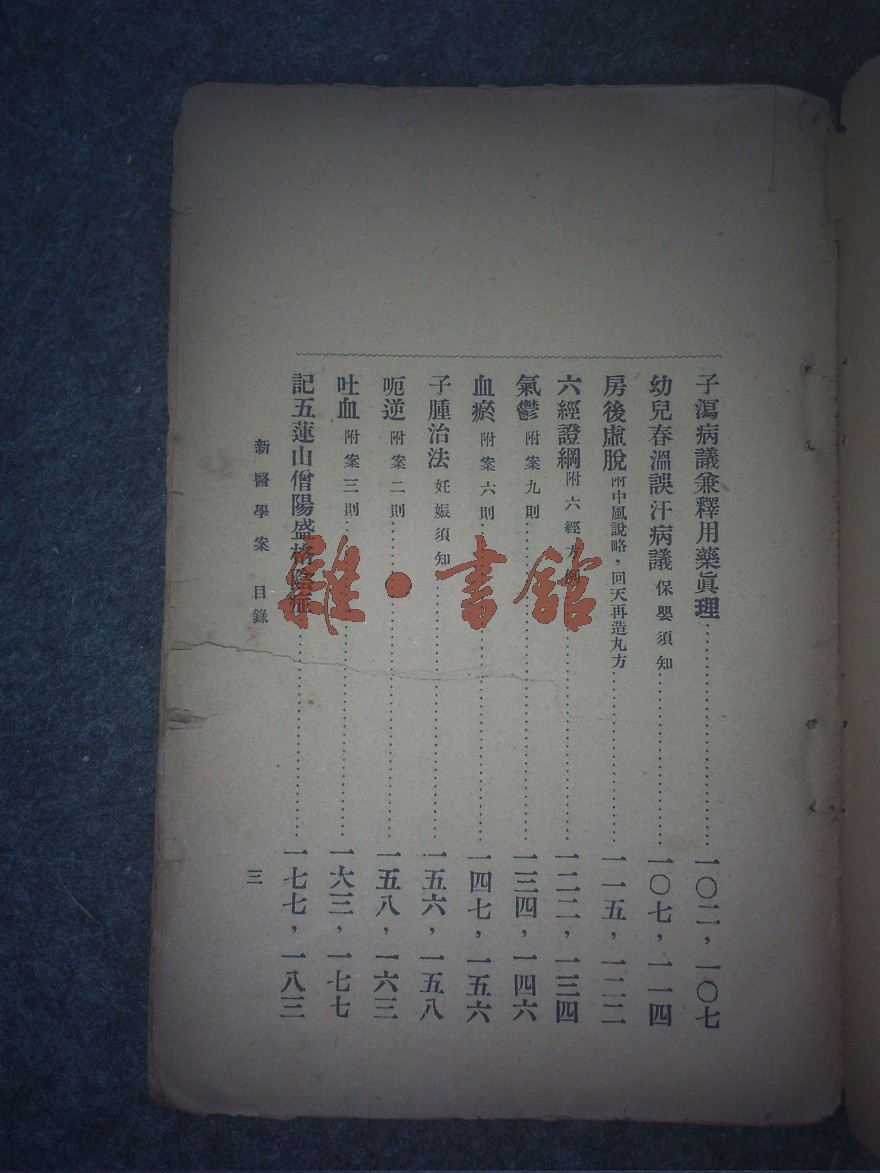 子瀉病議兼釋用藥眞理⋯⋯一〇二，一〇七
幼兒春溫誤汗病議 保嬰須知⋯⋯一〇七，一一四
房後虛脫 附中風說略，回天再造丸方⋯⋯一一五，一二二
六經證綱 附六經方⋯⋯一二二，一三四
氣鬱 附案九則⋯⋯一三四，一四六
血瘀 附案六則⋯⋯一四七，一五六
子腫治法 妊娠須知⋯⋯一五六，一五八
呃逆 附案二則⋯⋯一五八，一六三
吐血 附案三則⋯⋯一六三，一七七
記五蓮山僧陽盛格陰症⋯⋯一七七，一八三
新醫學案 目錄 三
雜·書館